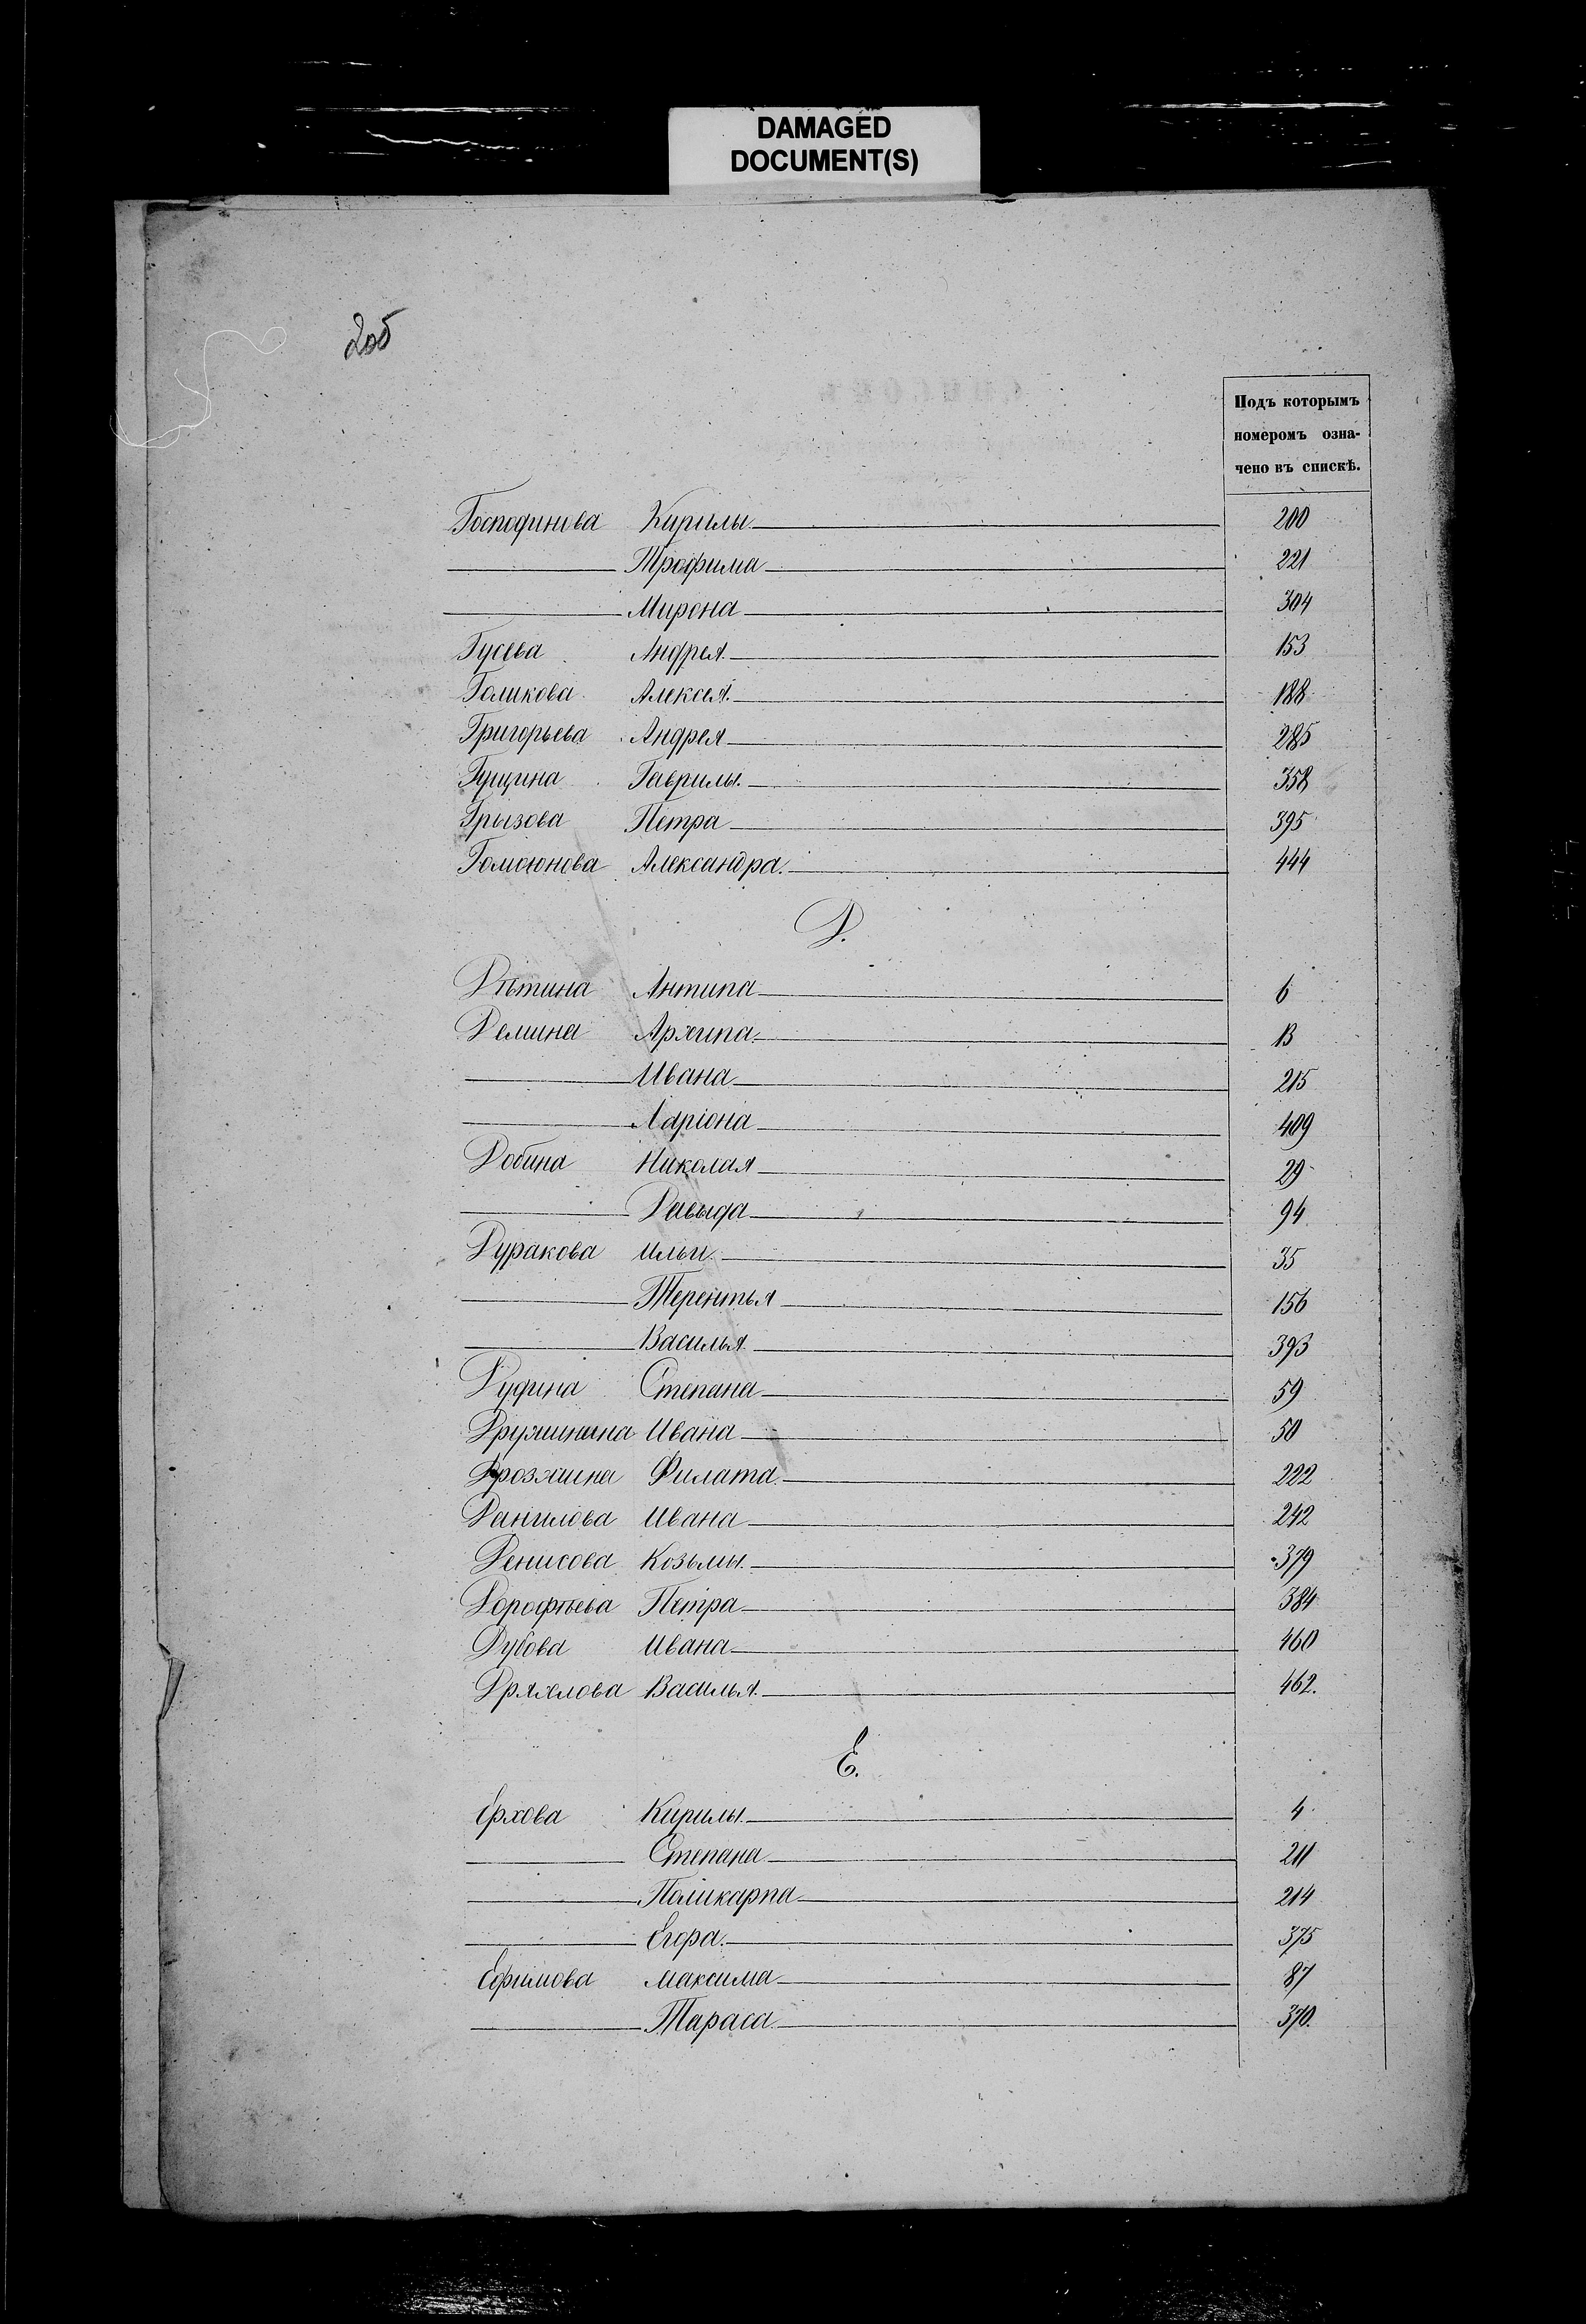 DAMAGED
DOCUMENT(S)
205
Подъ которымъ
номеромъ озна-
чено въ спискѣ.
Господинова Кирилы 200
Трофима 221
Мирона 304
Гусева Андрея 153
Голикова Алексея 188
Григорьева Андрея 285
Гущина Гаврилы 358
Грызова Петра 395
Александра 444
Д.
Дѣтина Антипа 6
Демина Архипа 13
Ивана 215
Ларіона 409
Добина Николая 29
Давыда 94
Дуракова Ильи 35
Терентья 156
Василья 393
Дудина Степана 59
Дружинина Ивана 50
Филата 222
Данилова Ивана 242
Денисова Козьмы 379
Дорофѣева Петра 384
Дубова Ивана 460
Дряхлова Василья 462.
Е.
Ерхова Кирилы 4
Степана 211
Поликарпа 214
Егора 375
Ефимова Максима 87
Тараса 370.